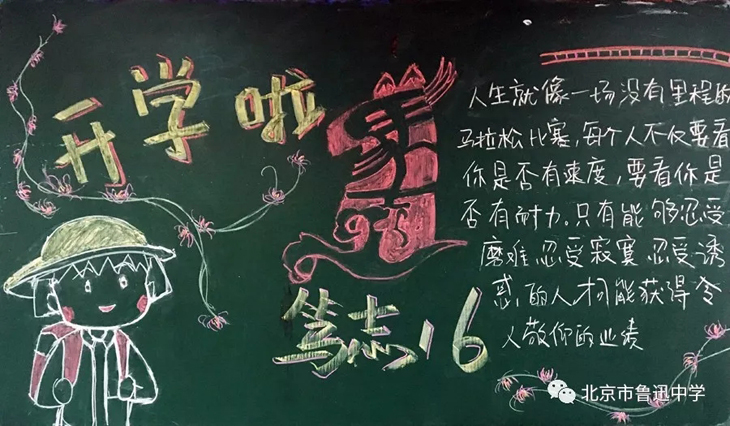 开学啦
笃志16
人生就像一场没有里程的
马拉松比赛,每个人不仅要看
你是否有速度,要看你是
否有耐力。只有能够忍受
磨难忍受寂寞忍受诱
惑,的人才能获得令
人敬仰的业绩
北京市鲁迅中学